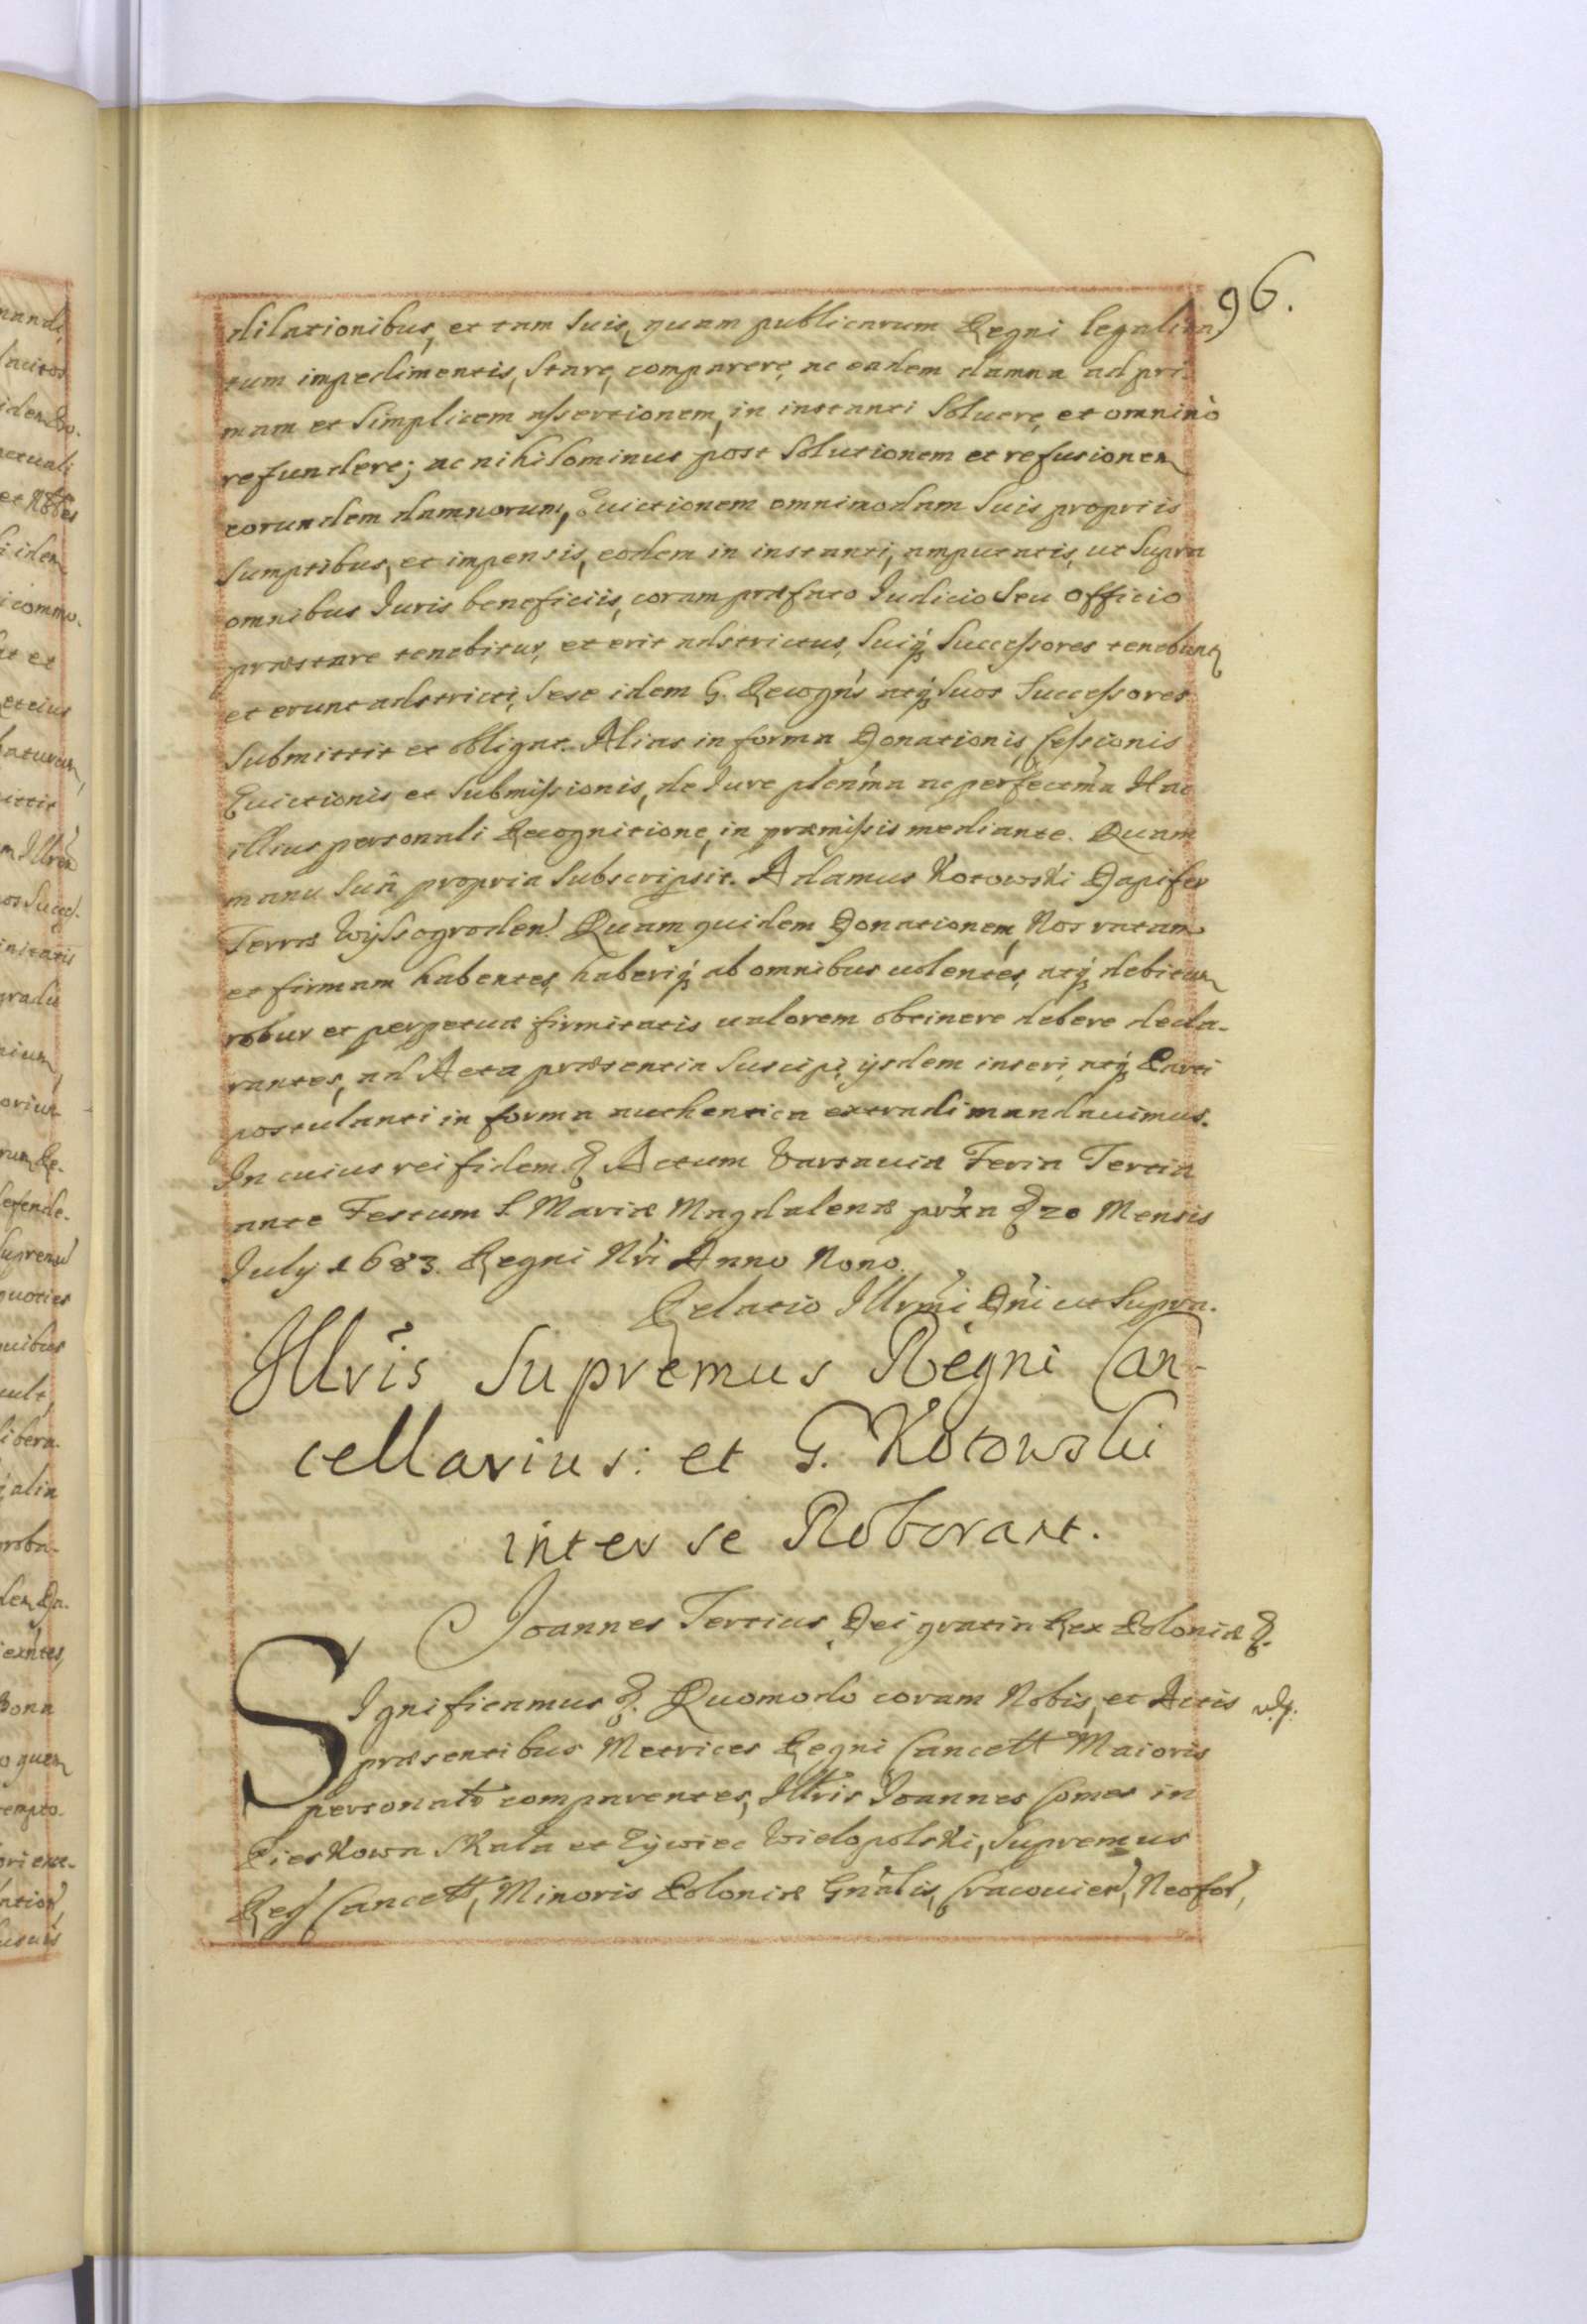 96.
dilationibus, et tam suis, quam publicarum Regni legalita
tum impedimentis, stare, comparere, ac eadem damna ad pri-
mam et simplicem assertionem, in instanti soluere, et omninò
refundere; ac nihilominus post solutionem et refusionem
eorundem damnorum, Euictionem omnimodam suis propriis
sumptibus, et impensis, eodem in instanti, amputatis, ut supra
omnibus Iuris beneficiis, coram præfato Iudicio seu officio
præstare tenebitur, et erit adstrictus, suiq; successores tenebunt
et erunt adstricti, sese idem G. Recogn's atq; suos successores
submittit et obligat. Alias in forma Donationis, Cessionis
Euictionis, et submissionis, de Iure plen'ma ac perfect'ma Hac
illius personali Recognitione, in præmissis mediante. Quam
manu suâ propria subscripsit. Adamus Kotowski Dapifer
Terræ Wyssogroden' Quam quidem Donationem, Nos ratam
et firmam habentes, haberiq; ab omnibus uolentes, atq; debitum
robur et perpetuæ firmitatis ualorem obtinere debere decla-
rantes, ad Acta præsentia suscipi, ijsdem inseri, atq; Parti
postulanti in forma authentica extradi mandauimus.
In cuius rei fidem & Actum Varsauiæ Feria Tertia
ante Festum S. Mariæ Magdalenæ prox'a & 20 Mensis
July 1683. Regni N'ri Anno Nono.
Relatio Illr'mi D'ni ut supra.
Illr'is Supremus Regni Can-
cellarius: et G. Kotowski
inter se Roborant.
Joannes Tertius Dei gratia Rex Poloniæ &.
SIgnificamus &. Quomodo coram Nobis, et Actis
præsentibus Metrices Regni Cancell Maioris
personalr comparentes, Illris Joannes Comes in
Pieskowa Skała et Zywiec Wielopolski, Supremus
Reg' Cancell, Minoris Poloniæ Gn'alis, Cracouien', Neofor',